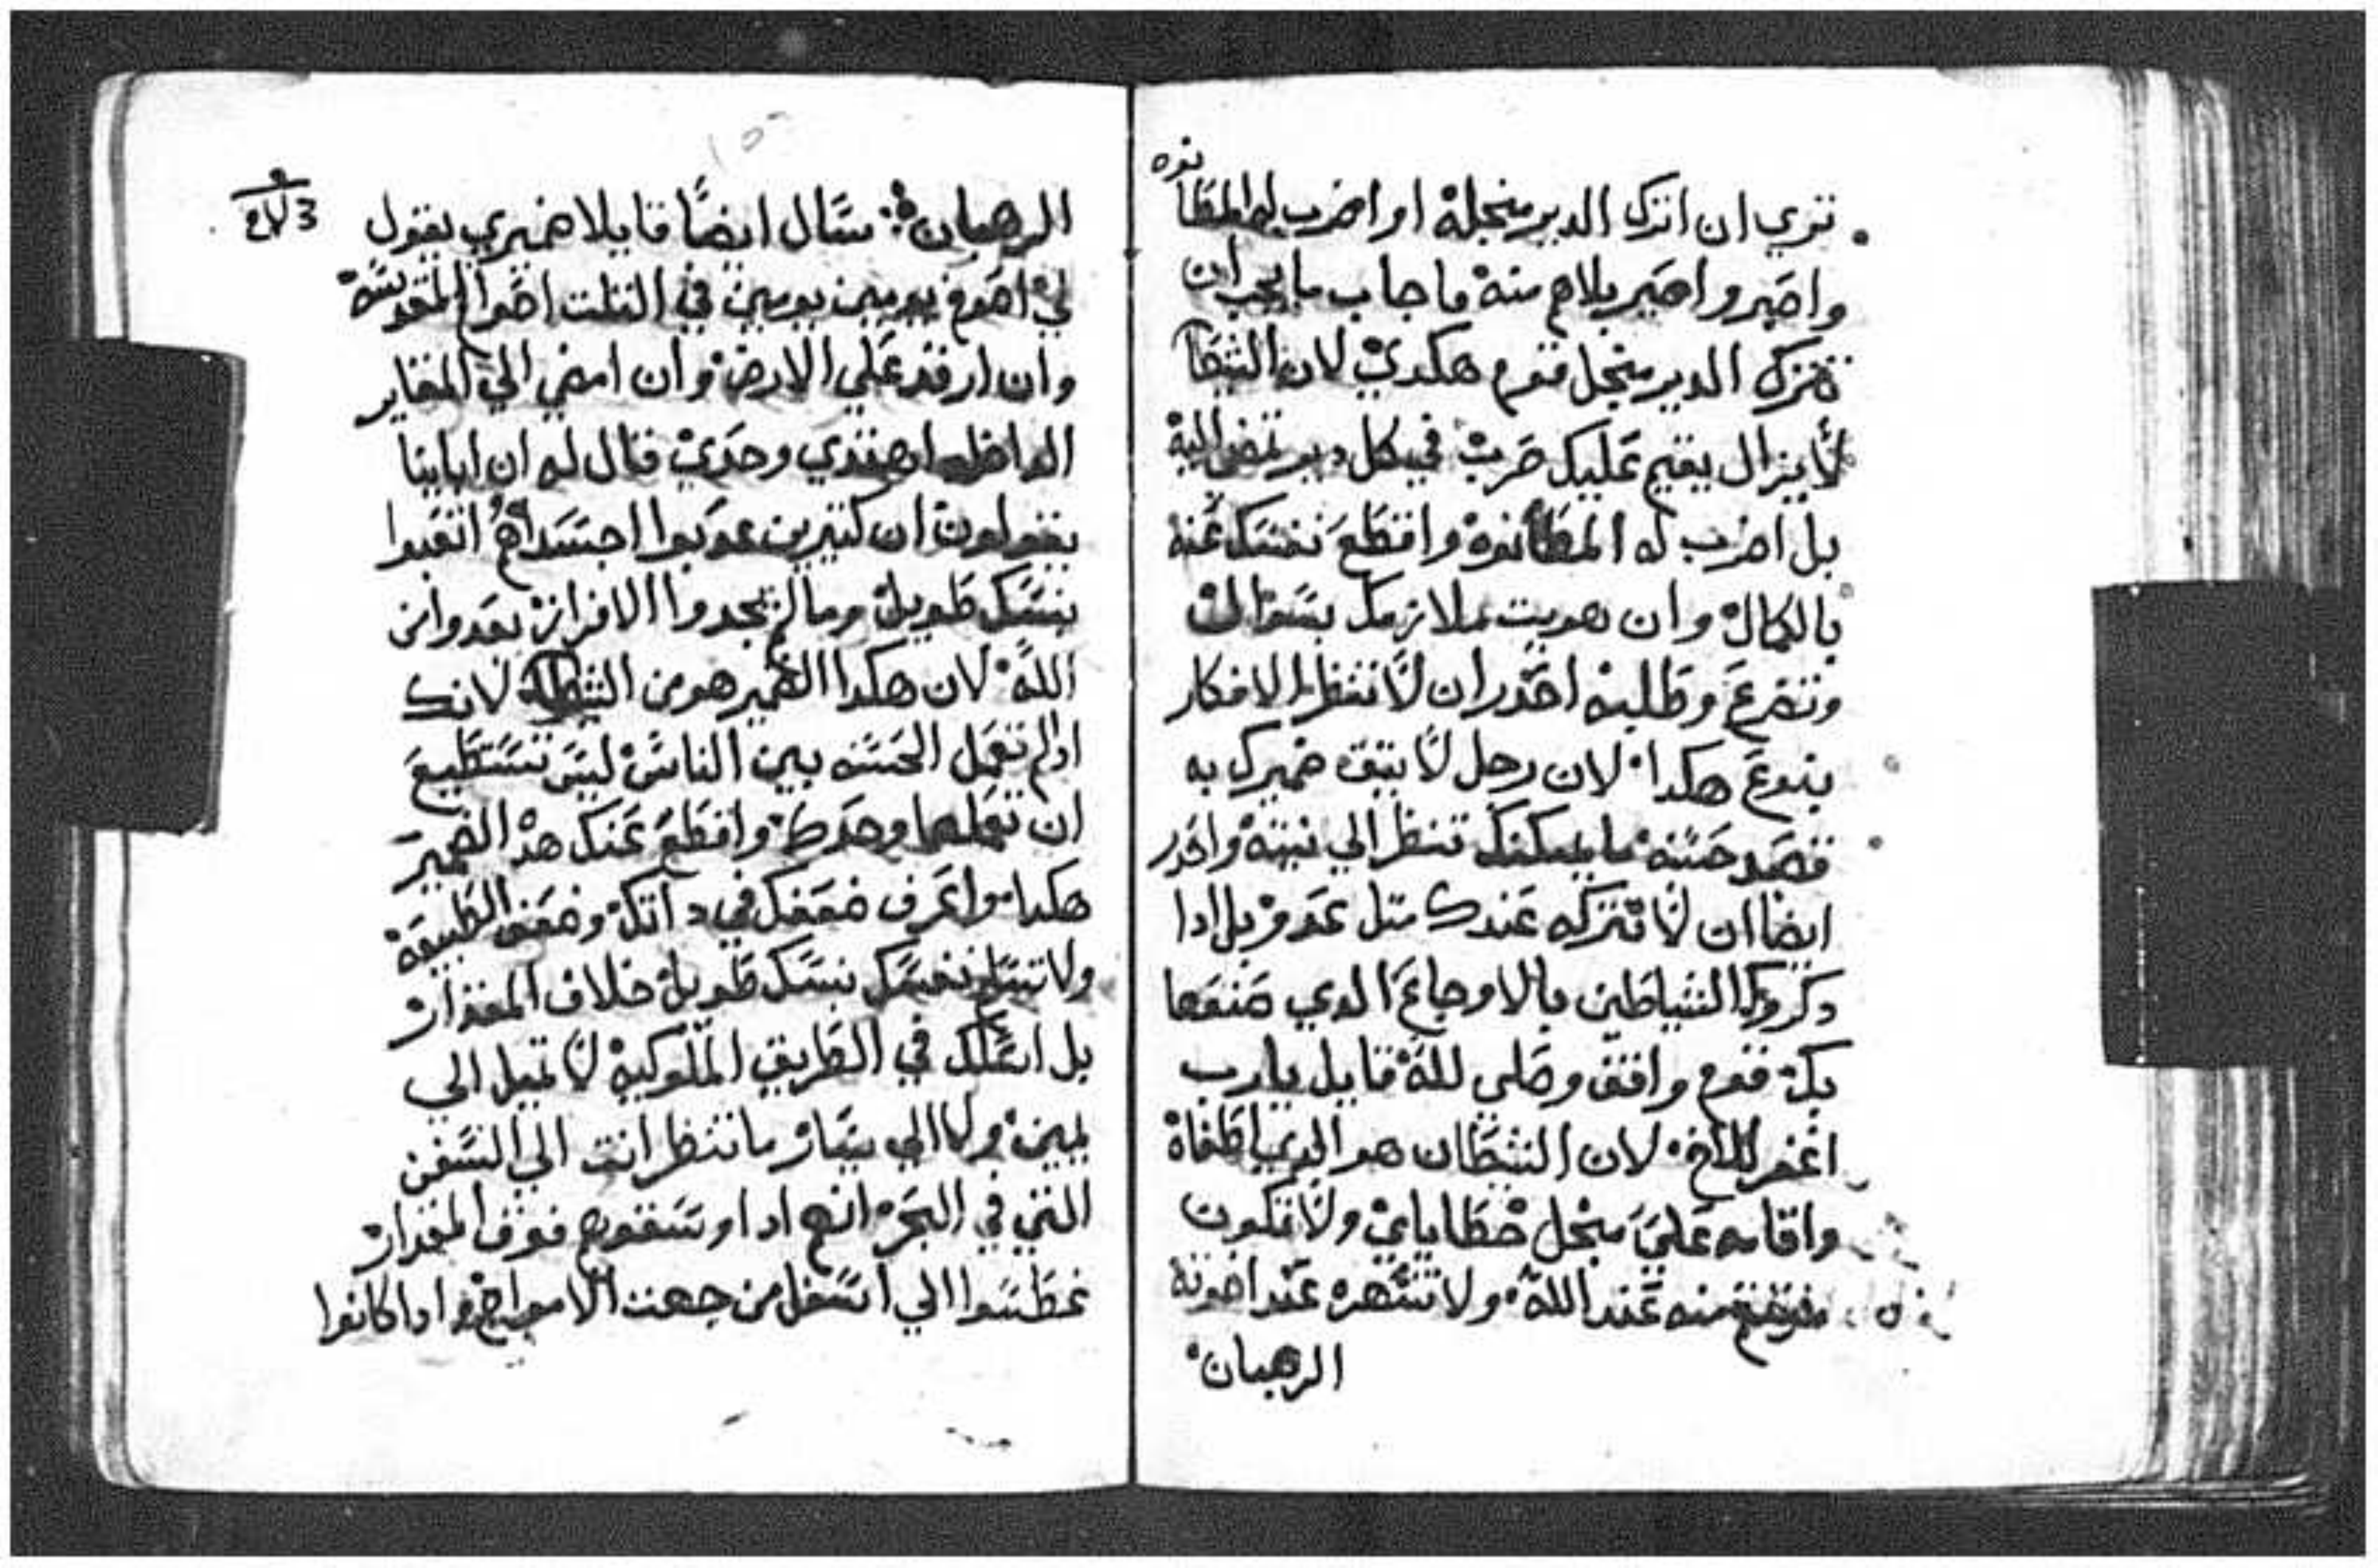 توري ان اترك الدير منجلة او اضرب له المطانوه
واصير واصير بلاهم منه فاجاب ما يجب ان
تترك الدير منجل قوم هكدي لان الشيطان
لايزال يقيم عليك حرب في كل دير تمضي اليه
بل اضرب له المطانوه واقطع نفسك عنه
بالكمال وان هويت ملازمك بسوال
وتضرع وطلبه احدر ان لا تنظر الافكار
بنوع هكدا لان رجل لا يتق ضميرك به
قصد حسنه ما يمكنك تنظر الي نيته واحدر
ايضا ان لا تتركه عندك متل عدو بل ادا
دكروك الشياطين بالاوجاع الدي صنعها
بك قوم واقف وصلي لله قايل يارب
اغفر للاخ لان الشيطان هو الدي اطغاه
واقامه علي منجل خطاياي ولا تكون
منه عند الله ولا تشهره عند اخوته
الرهبان
الرهبان سال ايضا قايلا ضميري يقول
لي اصوم يومين يومين في التلت اصوام المقدسة
وان ارقد علي الارض وان امضي الي المقاير
الداخله اهتدي وحدي قال له ان اباينا
يقولون ان كتيرين عدبوا اجسداهم اتعبوا
بنسك طويل وما لم يجدوا الافراز بعدوا من
الله لان هكدا الضمير هو من الشيطان لانك
ادا لم تعمل الحسنه بين الناس ليس تستطيع
ان تعملها وحدك واقطع عنك هدا الضمير
هكدا واعرف ضعفك في داتك وضعف الطبيعة
ولا تسلم نفسك بنسك طويل خلاف المقدار
بل اسلك في الطريق الملوكية لا تميل الي
يمين ولا الي يسار ما تنظر انت الي السفن
التي في البحر انهم ادا وسقوهم فوق المقدار
غطسوا الي اسفل من جهت الامواج وادا كانوا